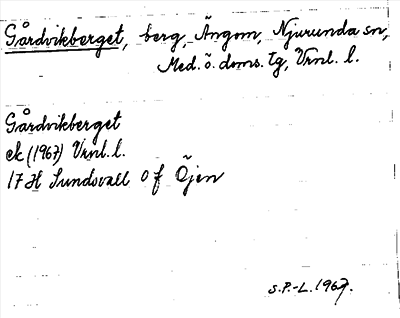 Gårdvikberget, berg, Ängom, Njurunda sn,
Med. ö. doms. tg, Vrnl. l.
Gårdvikberget
ek (1967) Vrnl. l.
17 H Sundsvall 0 f Öjen
S.P.-L. 1967.